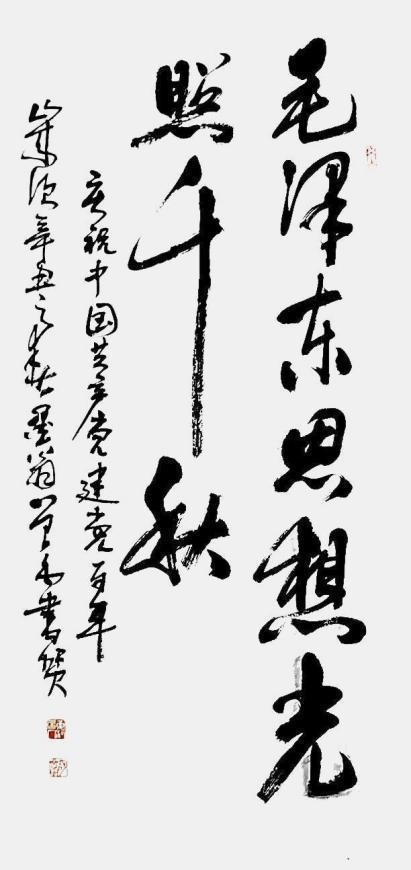 毛泽东思想光
照千秋
庆祝中国共产党建党百年
歲次辛丑之秋墨翁書賀